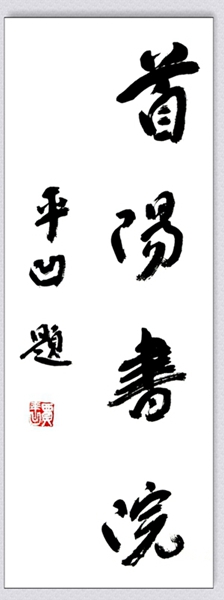 首陽書院
平凹題